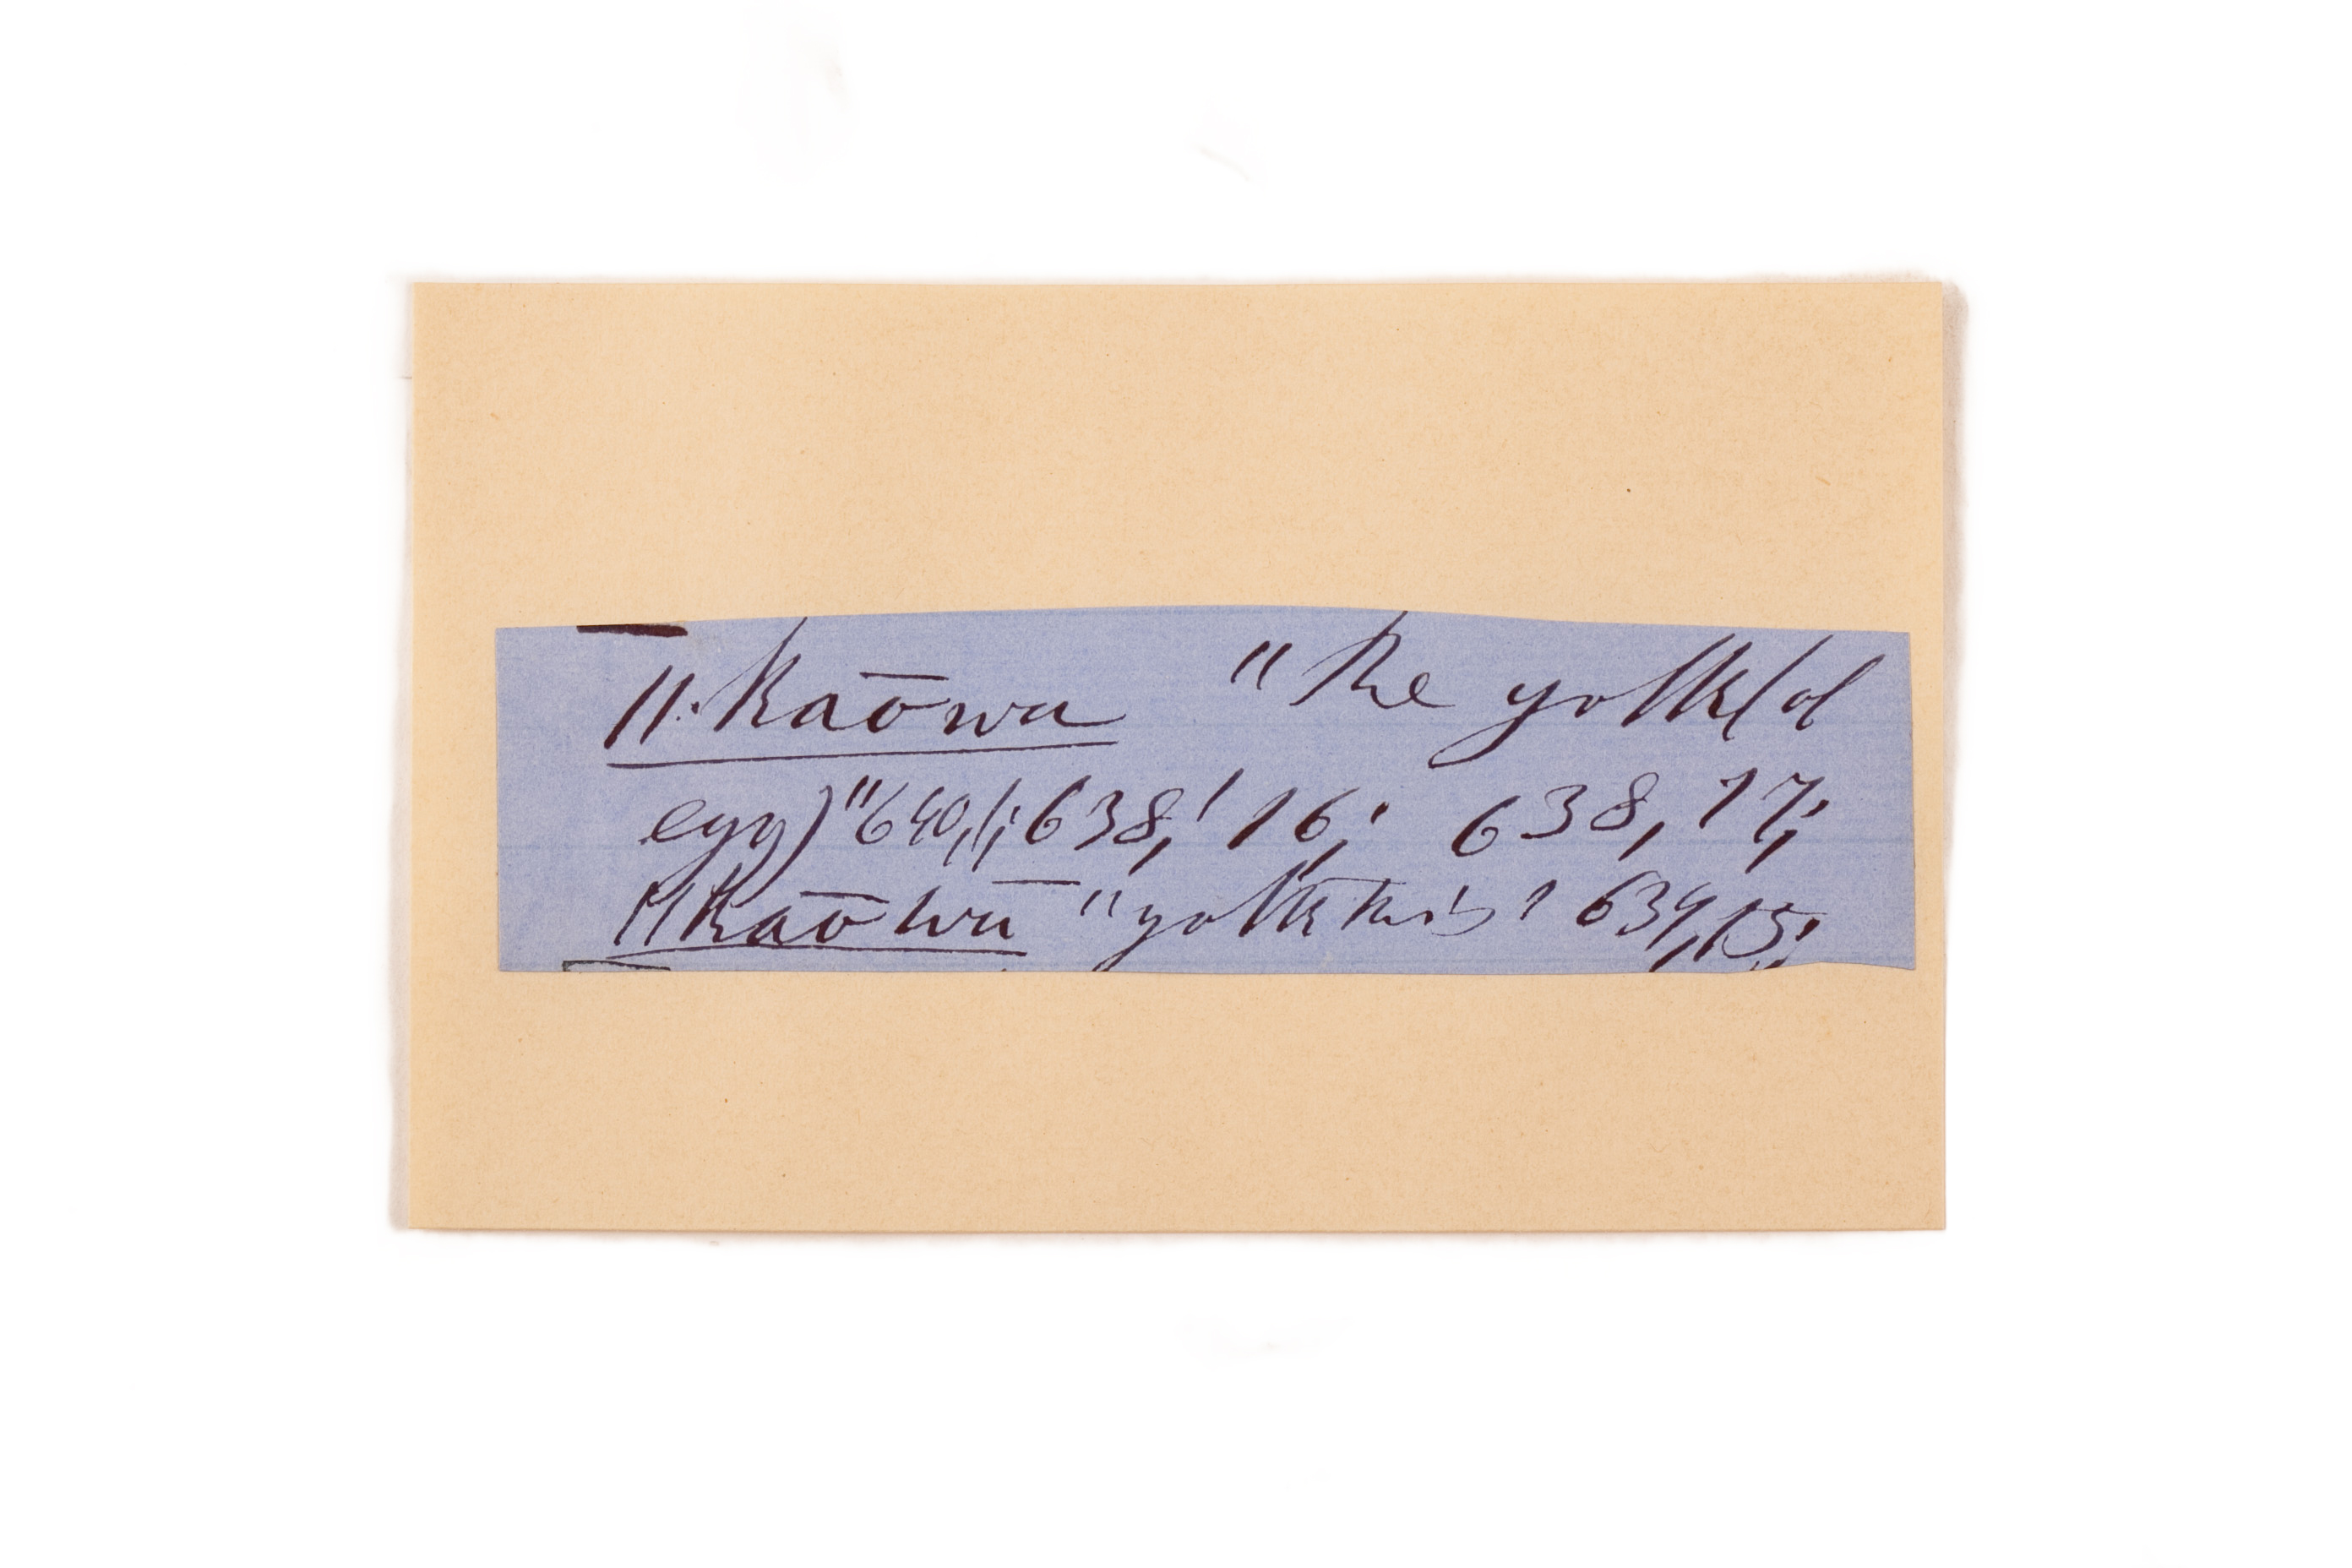 ǁ·kaōwa "the yolk (of
egg)" 640,1; 638, 16; 638, 17;
ǁkaōwā "yolk this" 639, 15;